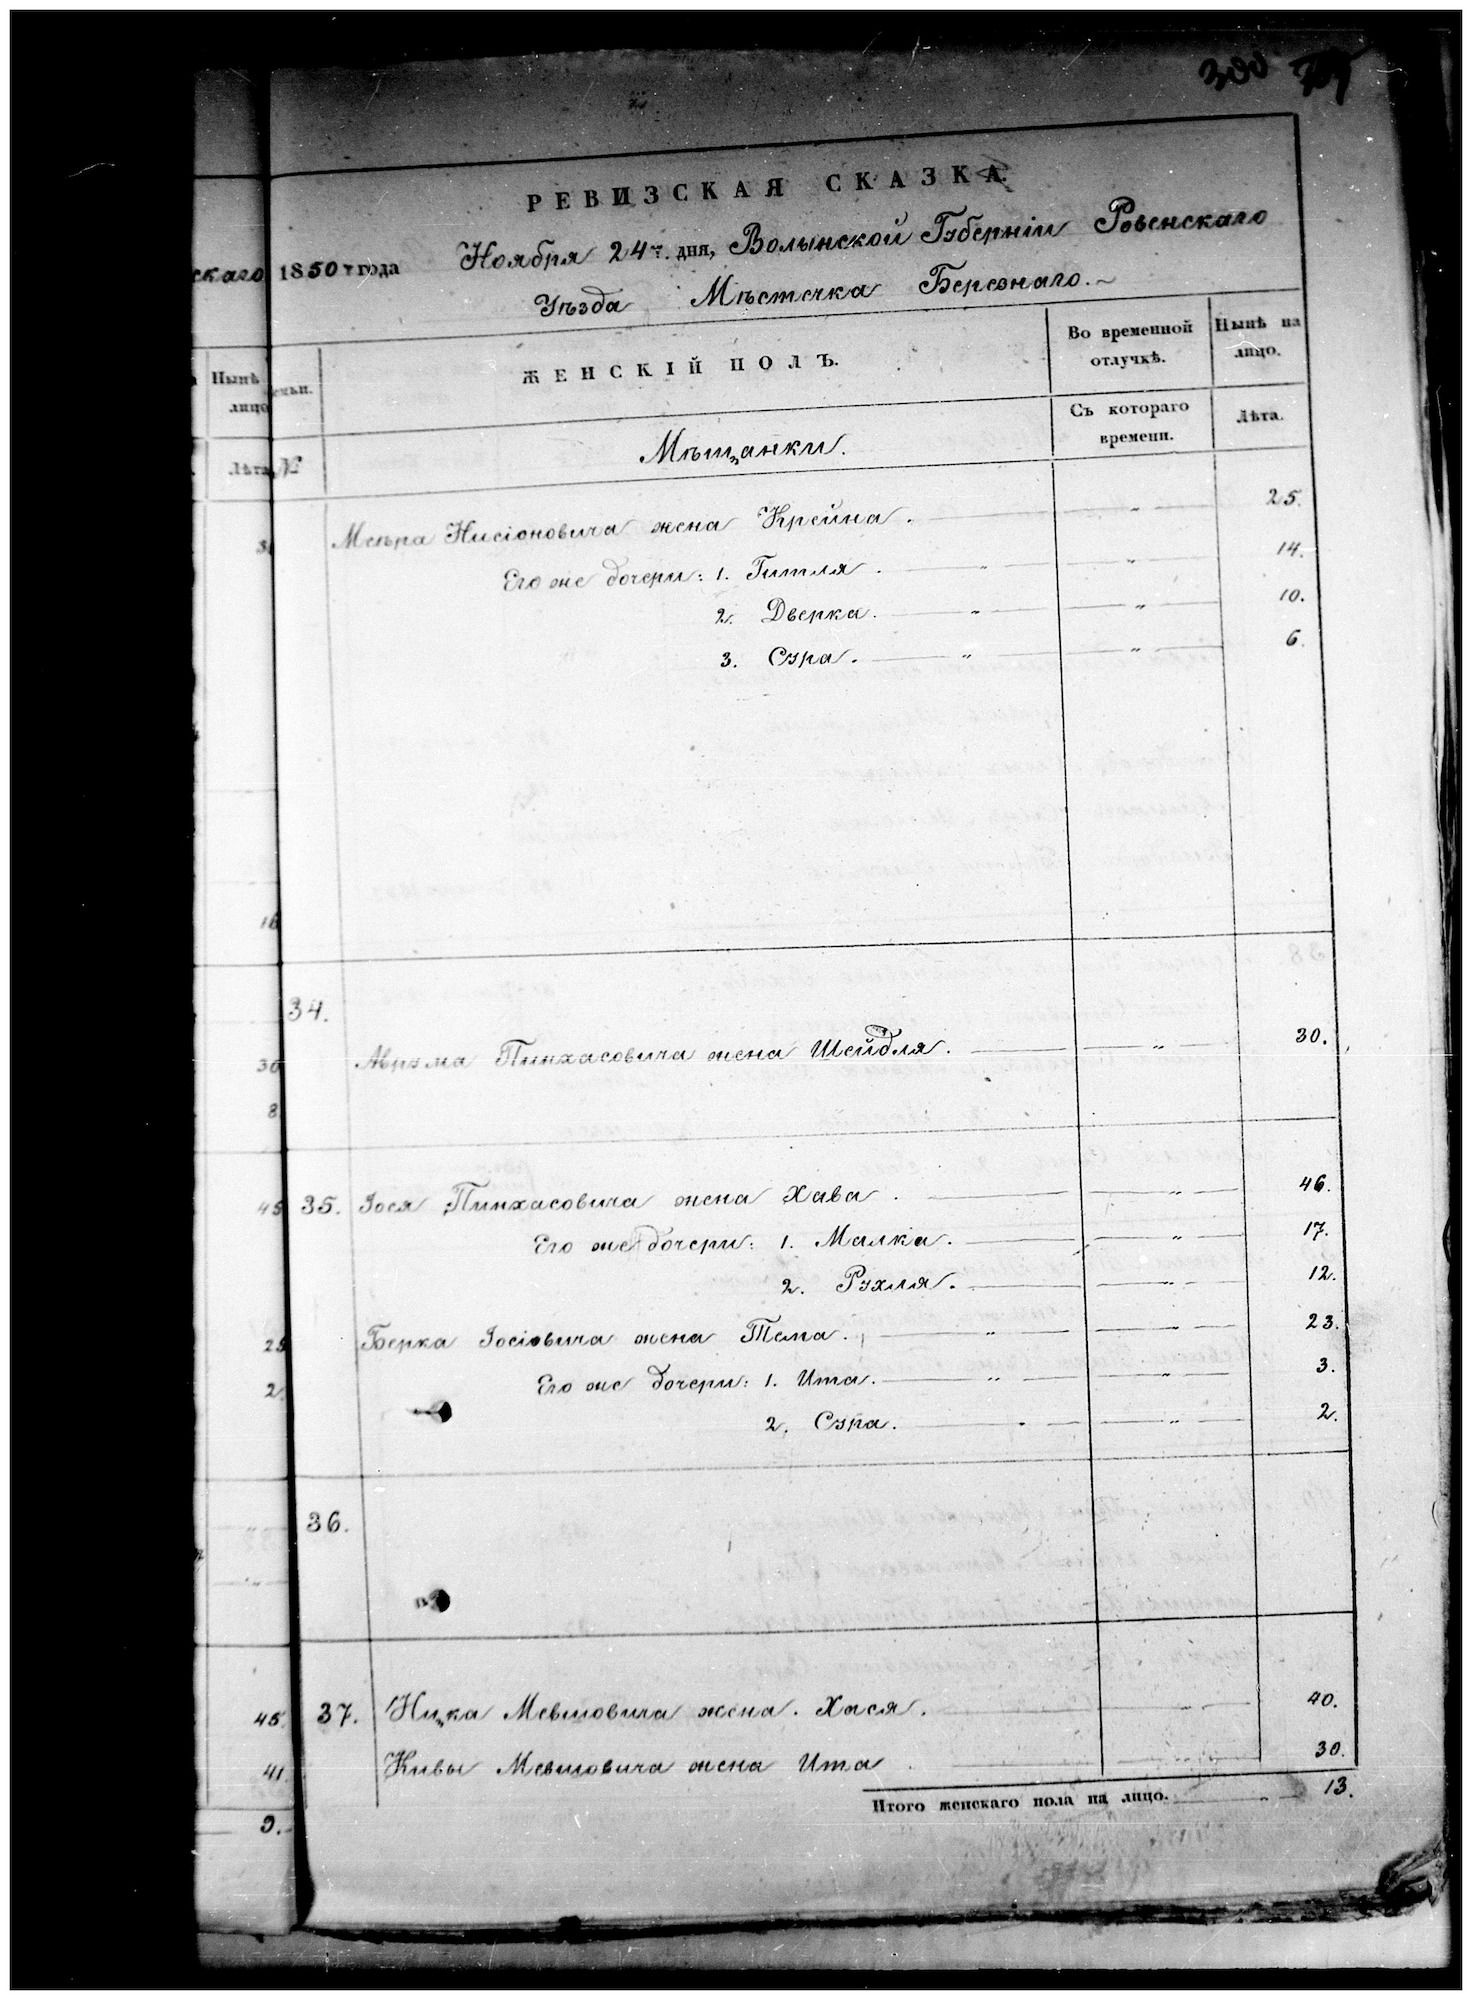 РЕВИЗСКАЯ СКАЗКА.
скаго 1850 года Ноября 24 дня, Волынской Губерніи Ровенскаго
Уѣзда Мѣстечка Березнаго.
Нынѣ
лицо
Лѣта
семьи.
№
ЖЕНСКІЙ ПОЛЪ.
Во временной отлучкѣ.
Нынѣ на лицо.
Мѣщанки.
Съ котораго времени.
Лѣта.
Меера Нисіоновича жена Крейна. " 25.
Его же дочери: 1. Гитля. " " 14.
2. Дверка. " " 10.
3. Сура. " " 6.
18
34.
30 Аврума Пинхасовича жена Шейдля. " 30.
8
45 35. Іося Пинхасовича жена Хава. " 46.
Его же дочери: 1. Малка. " 17.
2. Рухля. " 12.
25 Берка Іосіовича жена Тема. " " 23.
2 Его же дочери: 1. Ита. " " 3.
2. Сура. " " 2.
36.
45. 37. Ицка Мевшовича жена. Хася. " 40.
41. Кивы Мевшовича жена Ита. " 30.
9. Итого женскаго пола на лицо. 13.